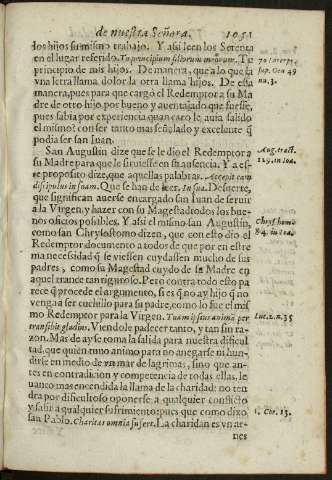 de nuestra Señora. 105
los hijos su mismo trabajo. Y assi leen los Setenta
en el lugar referido. Tu principium filiorum meorum. Tu
principio de mis hijos. De manera, que a lo que la
vna letra llama dolor la otra llama hijos. De esta
manera, pues para que cargó el Redemptor a su Ma
dre de otro hijo, por bueno y auentajado que fuesse,
pues sabia por experiencia quan caro le auia salido
el mismo? con ser tanto mas señalado y excelente q̃
podia ser san Iuan.
San Augustin dize que se le dio el Redemptor a
su Madre para que le siruiesse en su ausencia. Y a es-
te proposito dize, que aquellas palabras. Accepit eam
discipulus in suam. Que se han de leer. In sua. De suerte,
que significan auerse encargado san Iuan de seruir
a la Virgen, y hazer con su Magestad todos los bue
nos oficios posibles. Y assi el mismo san Augustin,
como san Chrysostomo dizen, que con esto dio el
Redemptor documento a todos de que por en estre
ma necessidad q̃ se viessen cuydassen mucho de sus
padres, como su Magestad cuydo de su Madre en
aquel trance tan riguroso. Pero contra todo esto pa
rece q̃ procede el argumento, si es q̃ no ay hijo q̃ no
venga a ser cuchillo para su padre, como lo fue el mis
mo Redemptor para la Virgen. Tuam ipsius animã per
transibit gladius. Viendole padecer tanto, y tan sin ra-
zon. Mas de ay se toma la salida para nuestra dificul
tad, que quien tuuo animo para no anegarse ni hun-
dirse en medio de vn mar de lagrimas, sino que an-
tes en contradicion y competencia de todas ellas, le
uanto mas encendida la llama de la charidad: no ten
dra por dificultoso oponerse a qualquier conflicto
y salir a qualquier sufrimiento; pues que como dixo
san Pablo. Charitas omnia suffert. La charidad es vn ar-
nes
sup. Gen 49
nu. 3.
Aug. tract.
119. in Ioa.
Chrys. homi
84. in Ioa.
Luc. 2. n. 35
1. Cor. 13.